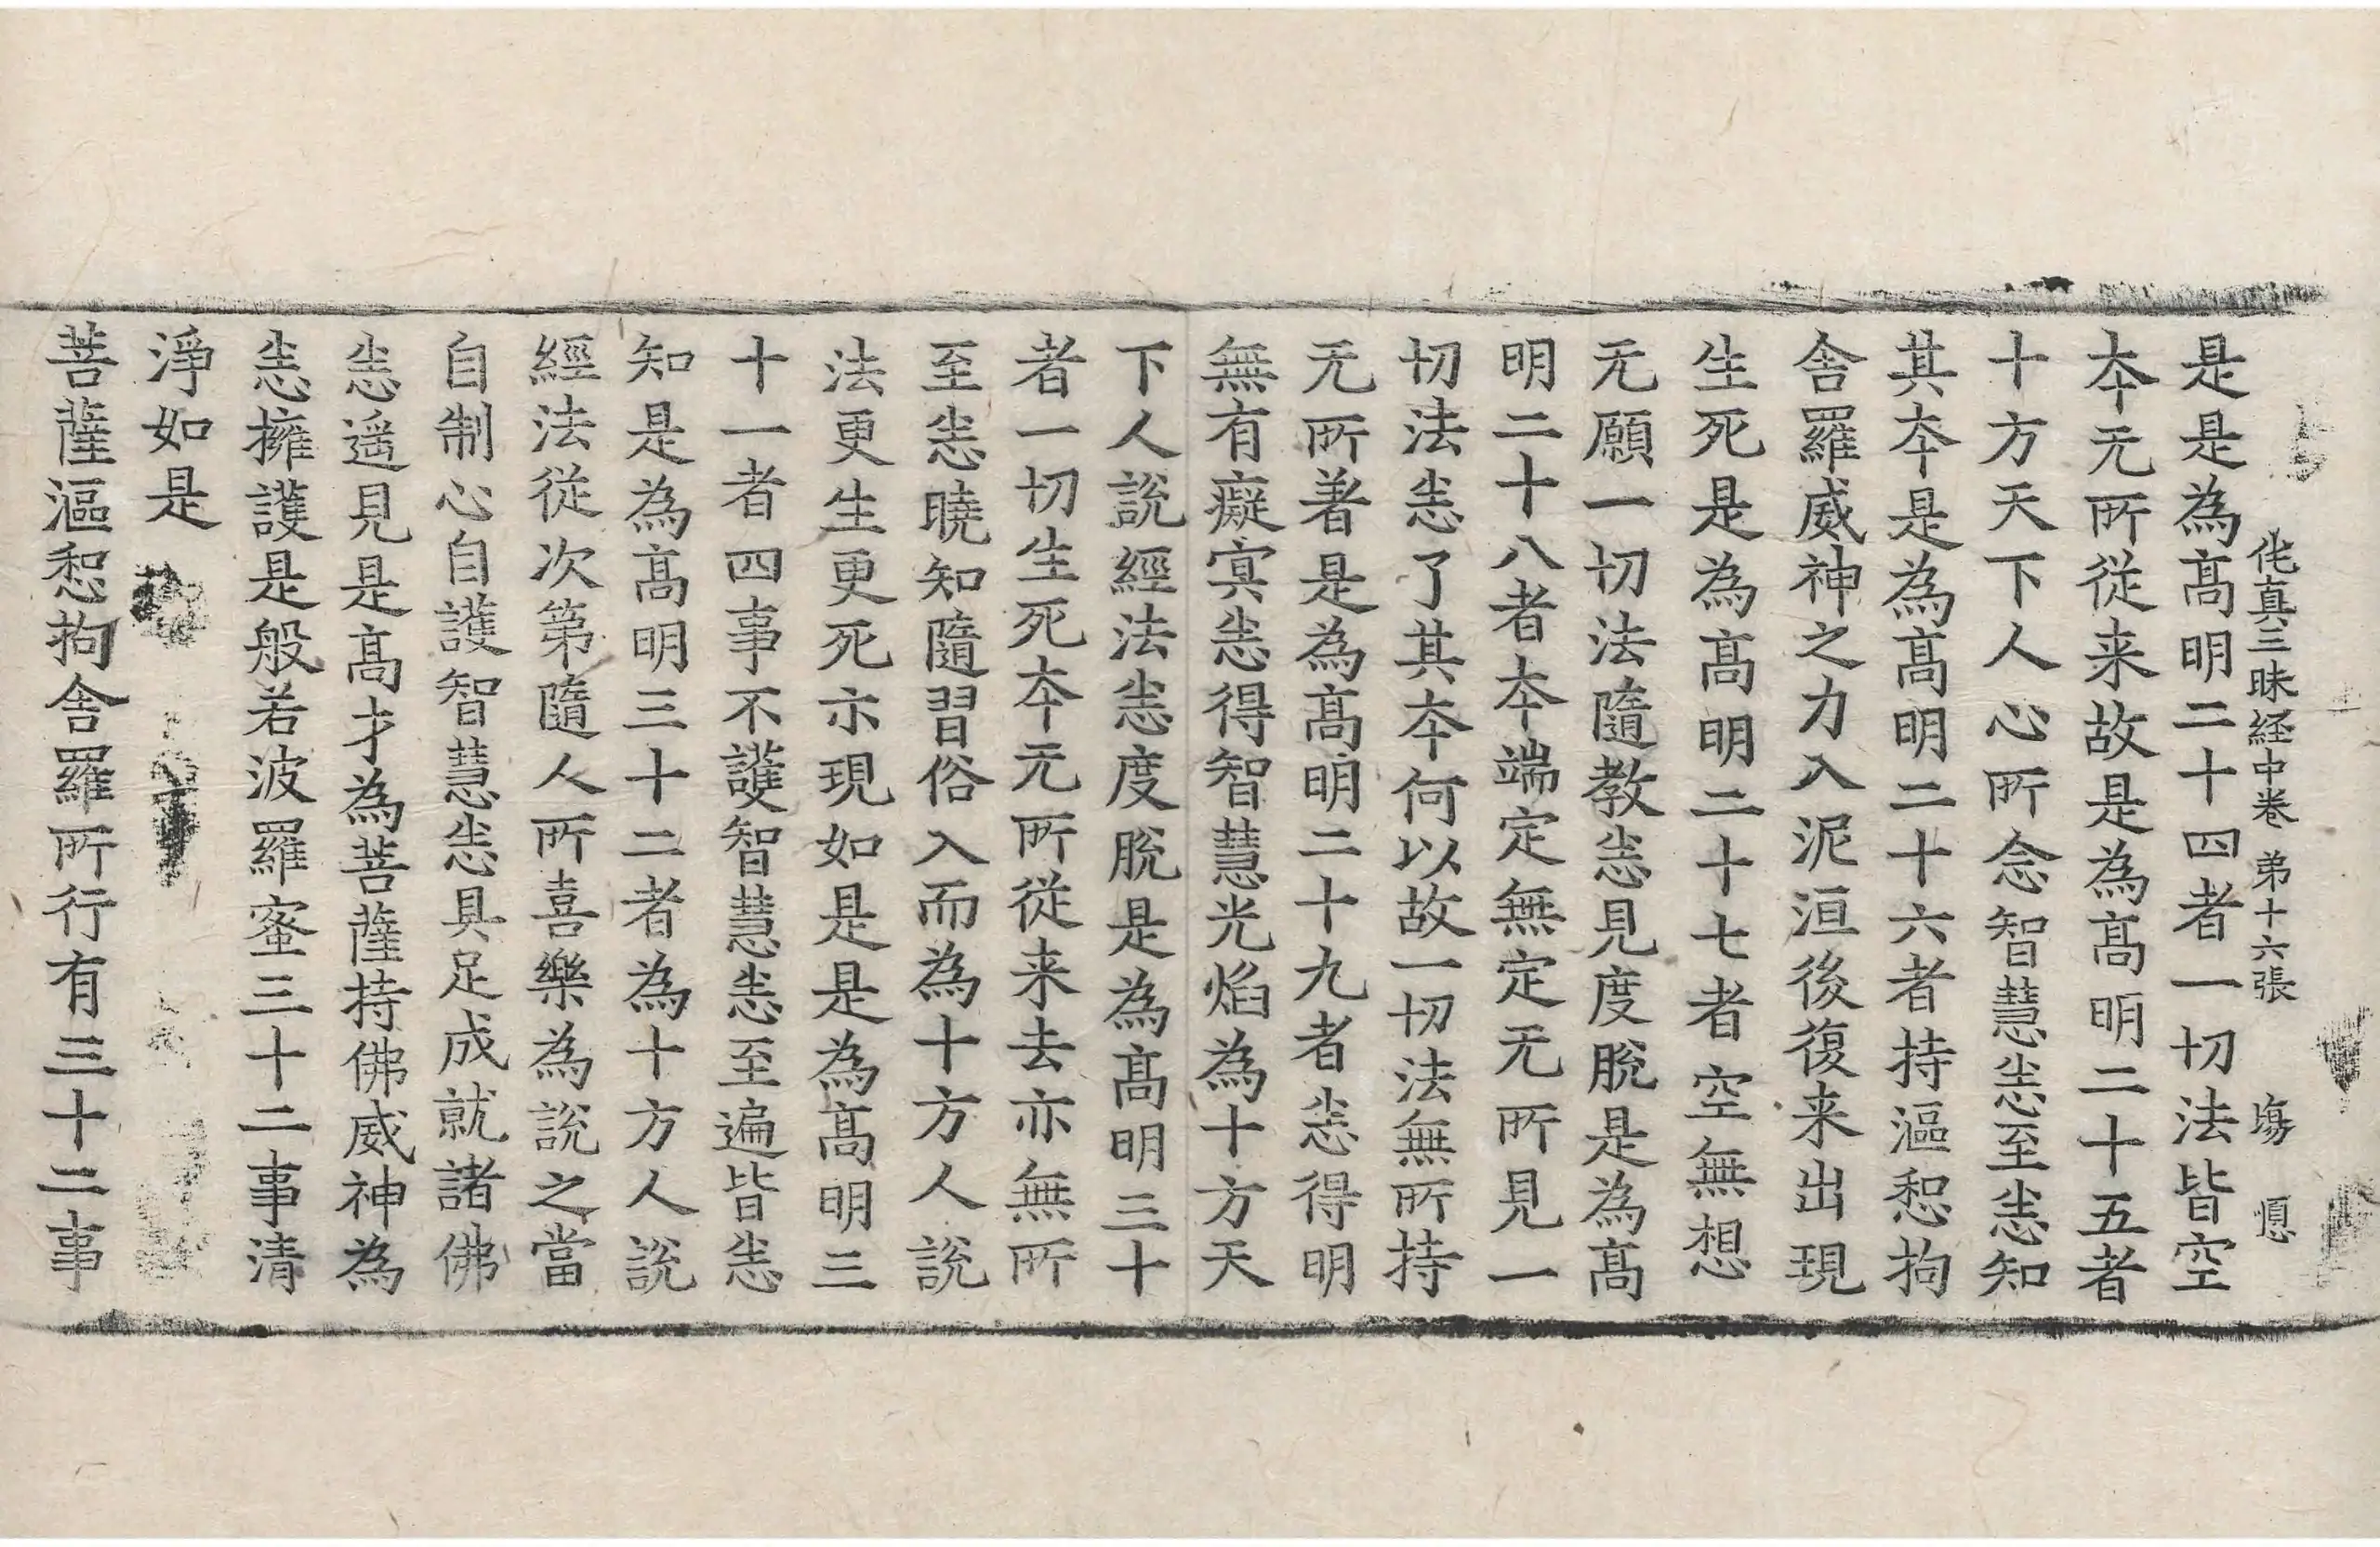 佗真三昧経中卷 弟十六張 塲 㥲
是是為髙明二十四者一切法皆空
夲无所從来故是為髙明二十五者
十方天下人心所念智慧㤙至㤙知
其夲是為髙明二十六者持漚惒拘
舎羅威神之力入泥洹後復来出現
生死是為髙明二十七者空無想
无願一切法隨教㤙見度脫是為髙
明二十八者夲端定無定无所見一
切法㤙了其夲何以故一切法無所持
无所著是為髙明二十九者㤙得明
無有癡㝠㤙得智慧光焰為十方天
下人說經法㤙度脫是為髙明三十
者一切生死夲元所從来去亦無所
至㤙曉知隨習俗入而為十方人說
法更生更死示現如是是為髙明三
十一者四事不護智慧㤙至遍皆㤙
知是為髙明三十二者為十方人說
經法從次第隨人所喜樂為說之當
自制心自護智慧㤙具足成就諸佛
㤙遥見是髙才為菩薩持佛威神為
㤙擁護是般若波羅蜜三十二事清
淨如是
菩薩漚惒拘舎羅所行有三十二事